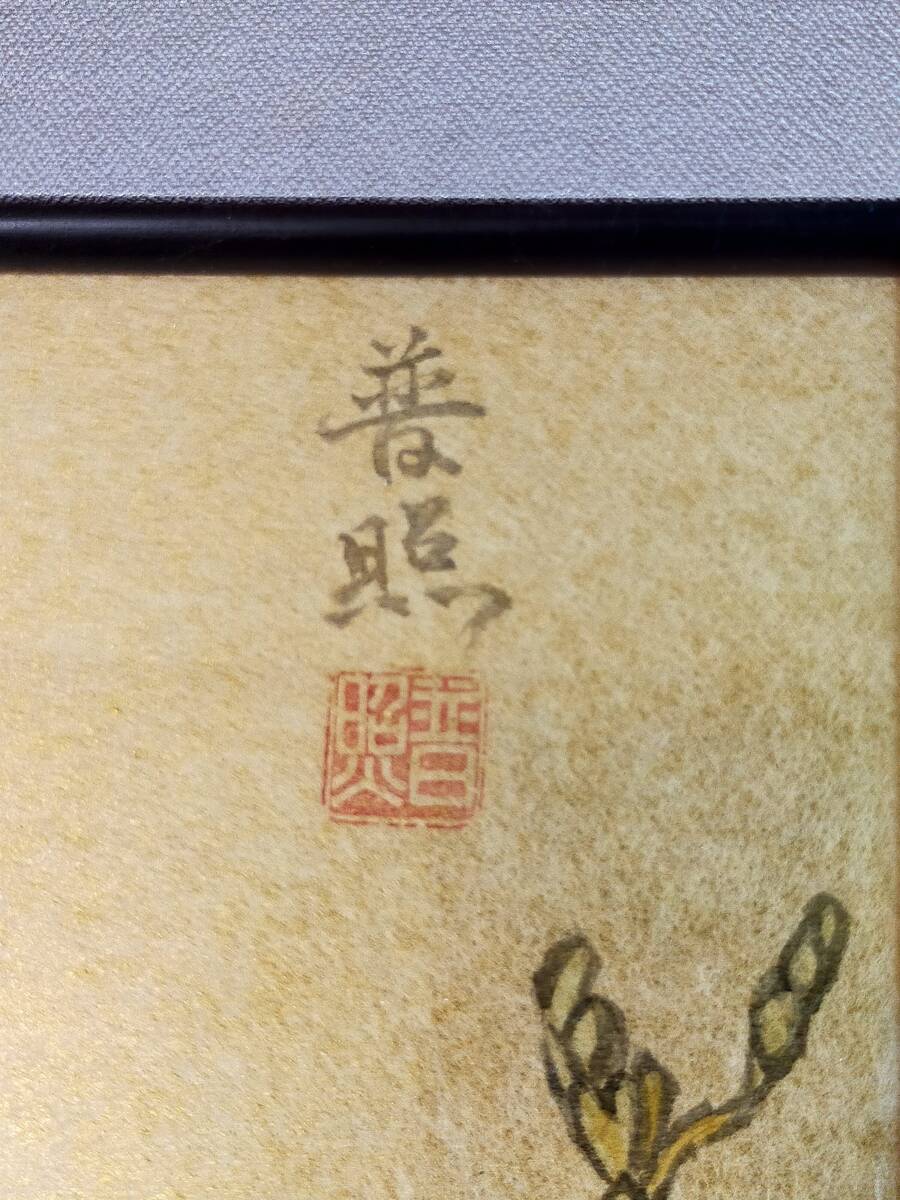 普
照
普照